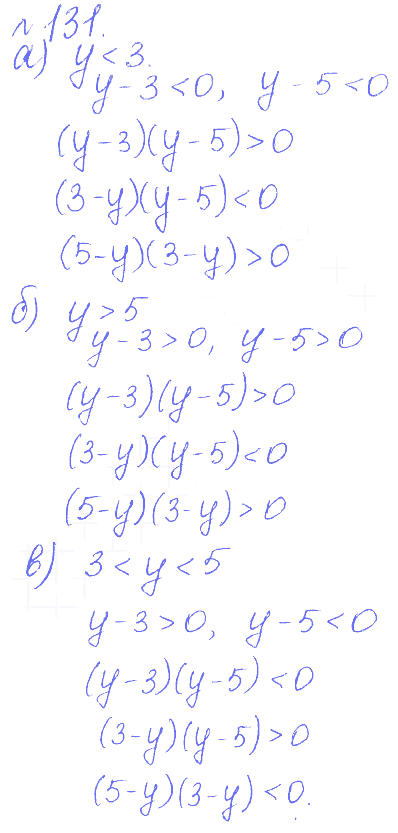 № 131.
а) y < 3.
y - 3 < 0, y - 5 < 0
(y - 3)(y - 5) > 0
(3 - y)(y - 5) < 0
(5 - y)(3 - y) > 0
б) y > 5
y - 3 > 0, y - 5 > 0
(y - 3)(y - 5) > 0
(3 - y)(y - 5) < 0
(5 - y)(3 - y) > 0
в) 3 < y < 5
y - 3 > 0, y - 5 < 0
(y - 3)(y - 5) < 0
(3 - y)(y - 5) > 0
(5 - y)(3 - y) < 0.